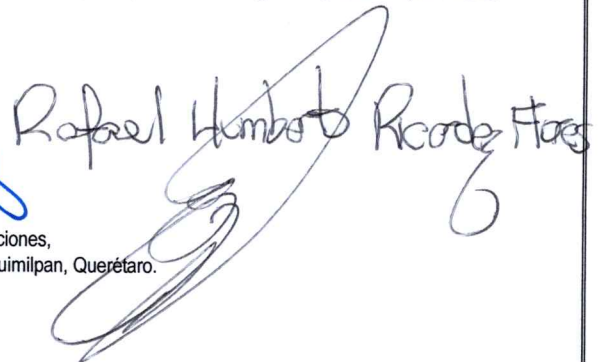 Rafael Humberto Ricardez Flores
ciones,
uimilpan, Querétaro.